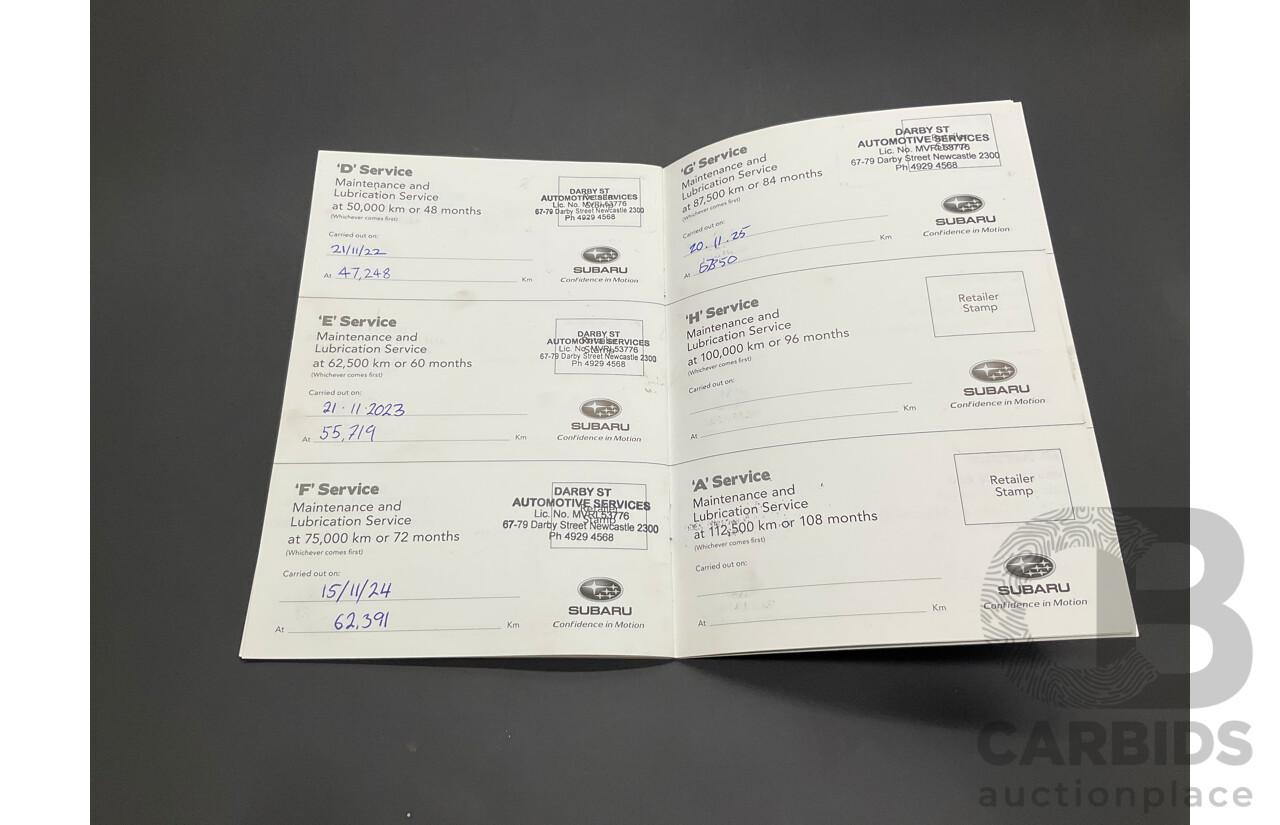 'D' Service
Maintenance and
Lubrication Service
at 50,000 km or 48 months
(Whichever comes first)
Carried out on:
21/11/22
At 47,248 Km
DARBY ST
AUTOMOTIVE SERVICES
Lic. No. MVRL53776
67-79 Darby Street Newcastle 2300
Ph 4929 4568
SUBARU
Confidence in Motion
'E' Service
Maintenance and
Lubrication Service
at 62,500 km or 60 months
(Whichever comes first)
Carried out on:
21.11.2023
At 55,719 Km
DARBY ST
AUTOMOTIVE SERVICES
Lic. No. MVRL53776
67-79 Darby Street Newcastle 2300
Ph 4929 4568
SUBARU
Confidence in Motion
'F' Service
Maintenance and
Lubrication Service
at 75,000 km or 72 months
(Whichever comes first)
Carried out on:
15/11/24
At 62,391 Km
DARBY ST
AUTOMOTIVE SERVICES
Lic. No. MVRL53776
67-79 Darby Street Newcastle 2300
Ph 4929 4568
SUBARU
Confidence in Motion
'G' Service
Maintenance and
Lubrication Service
at 87,500 km or 84 months
(Whichever comes first)
Carried out on:
20.11.25
At Km
DARBY ST
AUTOMOTIVE SERVICES
Lic. No. MVRL53776
67-79 Darby Street Newcastle 2300
Ph 4929 4568
SUBARU
Confidence in Motion
'H' Service
Maintenance and
Lubrication Service
at 100,000 km or 96 months
(Whichever comes first)
Carried out on:
At Km
Retailer
Stamp
SUBARU
Confidence in Motion
'A' Service
Maintenance and
Lubrication Service
at 112,500 km or 108 months
(Whichever comes first)
Carried out on:
At Km
Retailer
Stamp
SUBARU
Confidence in Motion
CARBIDS
auctionplace